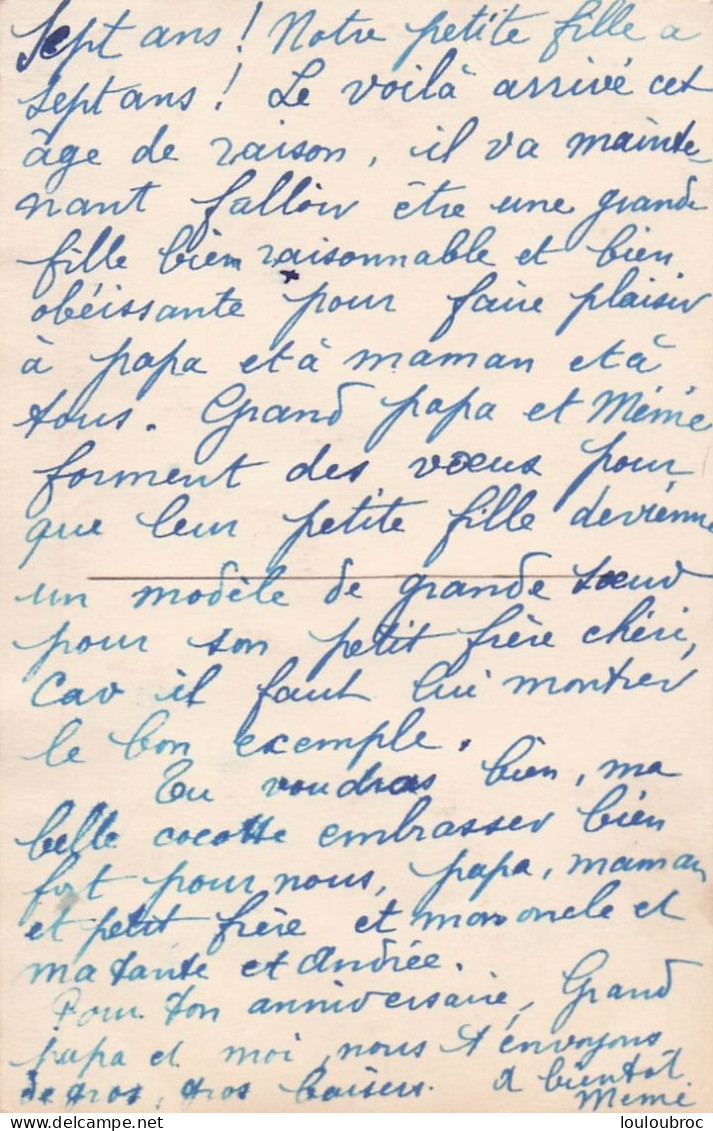 Sept ans! Notre petite fille a
sept ans! Le voilà arrivé cet
âge de raison, il va mainte-
nant falloir être une grande
fille bien raisonnable et bien
obéissante pour faire plaisir
à papa et à maman et à
tous. Grand papa et Mémé
forment des vœux pour
que leur petite fille devienne
un modèle de grande sœur
pour son petit frère chéri,
Car il faut lui montrer
le bon exemple.
Tu voudras bien, ma
belle cocotte embrasser bien
fort pour nous, papa, maman
et petit frère et mon oncle et
ma tante et Andrée.
Pour ton anniversaire, Grand
papa et moi nous t'envoyons
de gros, gros baisers. A bientôt
Mémé
DELCAMPE.NET
louloubroc